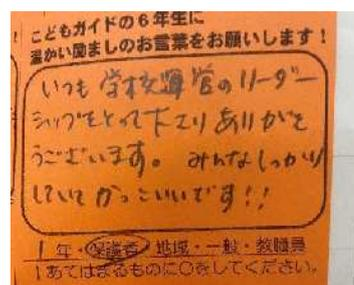 こどもガイドの6年生に
温かい励ましのお言葉をお願いします!
いつも学校運営のリーダー
シップをとって下さりありがと
うございます。みんなしっかり
していてかっこいいです!!
1年・保護者・地域・一般・教職員
↑あてはまるものに○をしてください。